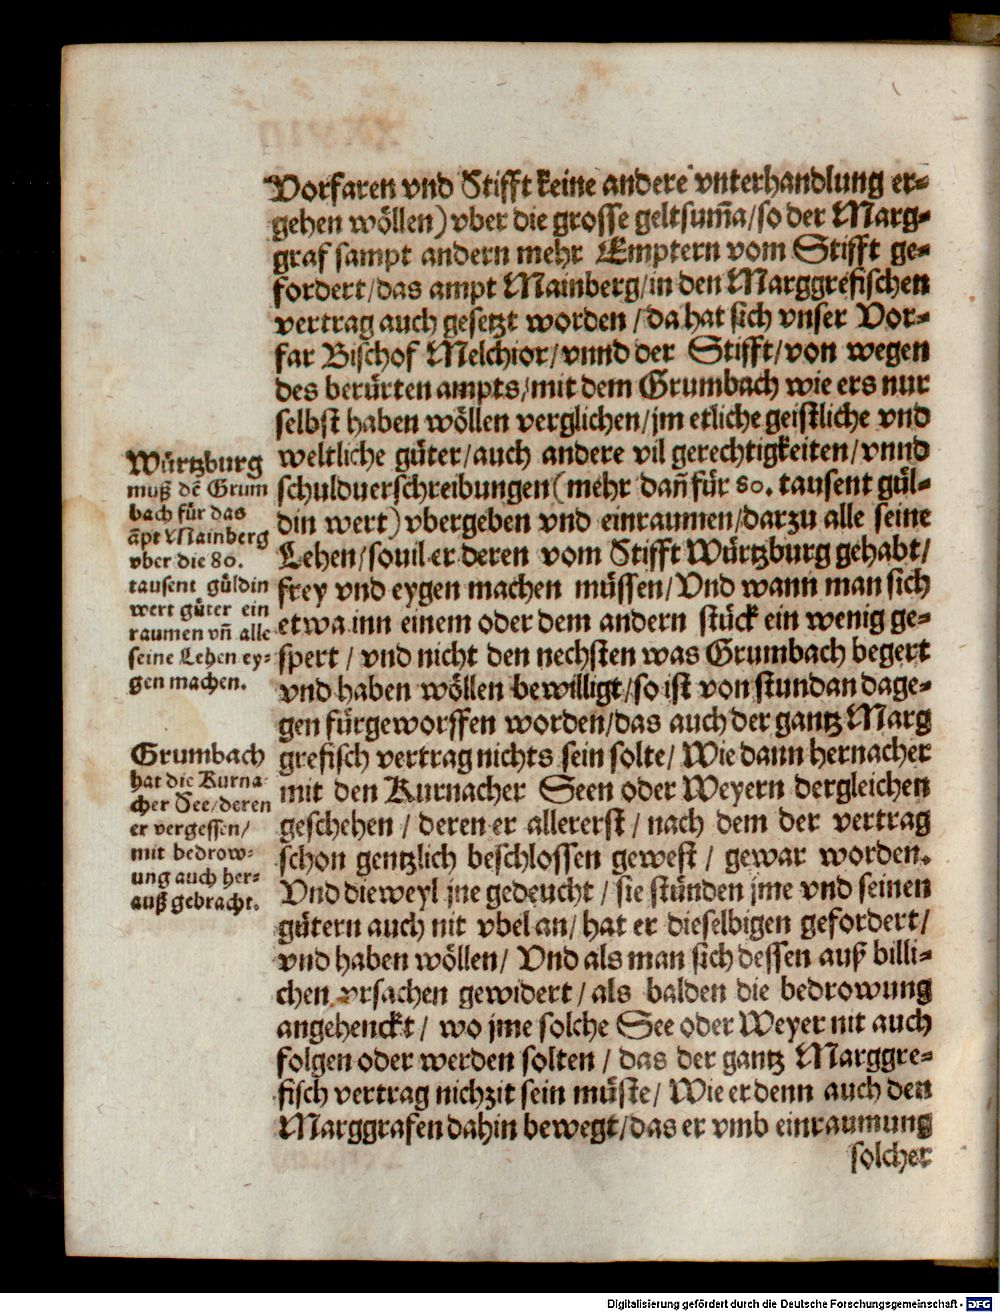 Vorfaren vnd Stifft keine andere vnterhandlung er⸗
gehen wöllen) vber die grosse geltsum̃a/so der Marg⸗
graf sampt andern mehr Emptern vom Stifft ge⸗
fordert/das ampt Mainberg/in den Marggrefischen
vertrag auch gesetzt worden/da hat sich vnser Vor⸗
far Bischof Melchior/vnnd der Stifft/von wegen
des berürten ampts/mit dem Grumbach wie ers nur
selbst haben wöllen verglichen/jm etliche geistliche vnd
weltliche güter/auch andere vil gerechtigkeiten/vnnd
schulduerschreibungen(mehr dañ für 80. tausent gül⸗
din wert) vbergeben vnd einraumen/darzu alle seine
Lehen/souil er deren vom Stifft Würtzburg gehabt/
frey vnd eygen machen müssen/Vnd wann man sich
etwa inn einem oder dem andern stück ein wenig ge⸗
spert/vnd nicht den nechsten was Grumbach begert
vnd haben wöllen bewilligt/so ist von stundan dage⸗
gen fürgeworffen worden/das auch der gantz Marg
grefisch vertrag nichts sein solte/Wie dann hernacher
mit den Kurnacher Seen oder Weyern dergleichen
geschehen/deren er allererst/nach dem der vertrag
schon gentzlich beschlossen gewest/gewar worden.
Vnd dieweyl jne gedeucht/sie stünden jme vnd seinen
gütern auch nit vbel an/hat er dieselbigen gefordert/
vnd haben wöllen/Vnd als man sich dessen auß billi⸗
chen vrsachen gewidert/als balden die bedrowung
angehenckt/wo jme solche See oder Weyer nit auch
folgen oder werden solten/das der gantz Marggre⸗
fisch vertrag nichzit sein müste/Wie er denn auch den
Marggrafen dahin bewegt/das er vmb einraumung
solcher
Würtzburg
muß dẽ Grum
bach für das
ãpt Mainberg
vber die 80.
tausent güldin
wert güter ein
raumen vñ alle
seine Lehen ey⸗
gen machen.
Grumbach
hat die Kurna
cher See/deren
er vergessen/
mit bedrow⸗
ung auch her⸗
auß gebracht.
Digitalisierung gefördert durch die Deutsche Forschungsgemeinschaft - DFG